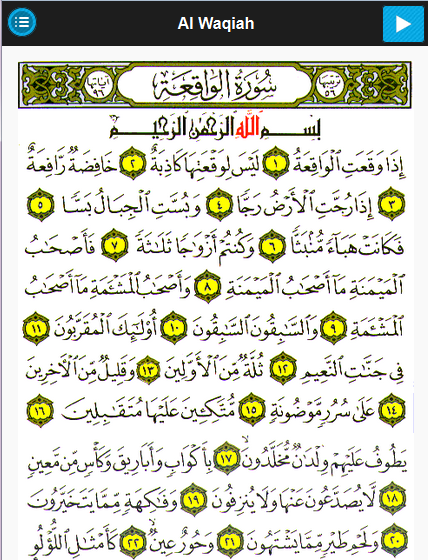 Al Waqiah
ترتيبها ٥٦ سُورَةُ الوَاقِعَة آياتها ٩٦
بِسْمِ اللَّهِ الرَّحْمَٰنِ الرَّحِيمِ
إِذَا وَقَعَتِ الْوَاقِعَةُ ١ لَيْسَ لِوَقْعَتِهَا كَاذِبَةٌ ٢ خَافِضَةٌ رَّافِعَةٌ
٣ إِذَا رُجَّتِ الْأَرْضُ رَجًّا ٤ وَبُسَّتِ الْجِبَالُ بَسًّا ٥
فَكَانَتْ هَبَاءً مُّنۢبَثًّا ٦ وَكُنتُمْ أَزْوَاجًا ثَلَاثَةً ٧ فَأَصْحَابُ
الْمَيْمَنَةِ مَا أَصْحَابُ الْمَيْمَنَةِ ٨ وَأَصْحَابُ الْمَشْئَمَةِ مَا أَصْحَابُ
الْمَشْئَمَةِ ٩ وَالسَّابِقُونَ السَّابِقُونَ ١٠ أُولَٰئِكَ الْمُقَرَّبُونَ ١١
فِي جَنَّاتِ النَّعِيمِ ١٢ ثُلَّةٌ مِّنَ الْأَوَّلِينَ ١٣ وَقَلِيلٌ مِّنَ الْآخِرِينَ
١٤ عَلَىٰ سُرُرٍ مَّوْضُونَةٍ ١٥ مُّتَّكِئِينَ عَلَيْهَا مُتَقَابِلِينَ ١٦
يَطُوفُ عَلَيْهِمْ وِلْدَانٌ مُّخَلَّدُونَ ١٧ بِأَكْوَابٍ وَأَبَارِيقَ وَكَأْسٍ مِّن مَّعِينٍ
١٨ لَّا يُصَدَّعُونَ عَنْهَا وَلَا يُنزِفُونَ ١٩ وَفَاكِهَةٍ مِّمَّا يَتَخَيَّرُونَ
٢٠ وَلَحْمِ طَيْرٍ مِّمَّا يَشْتَهُونَ ٢١ وَحُورٌ عِينٌ ٢٢ كَأَمْثَالِ اللُّؤْلُؤِ